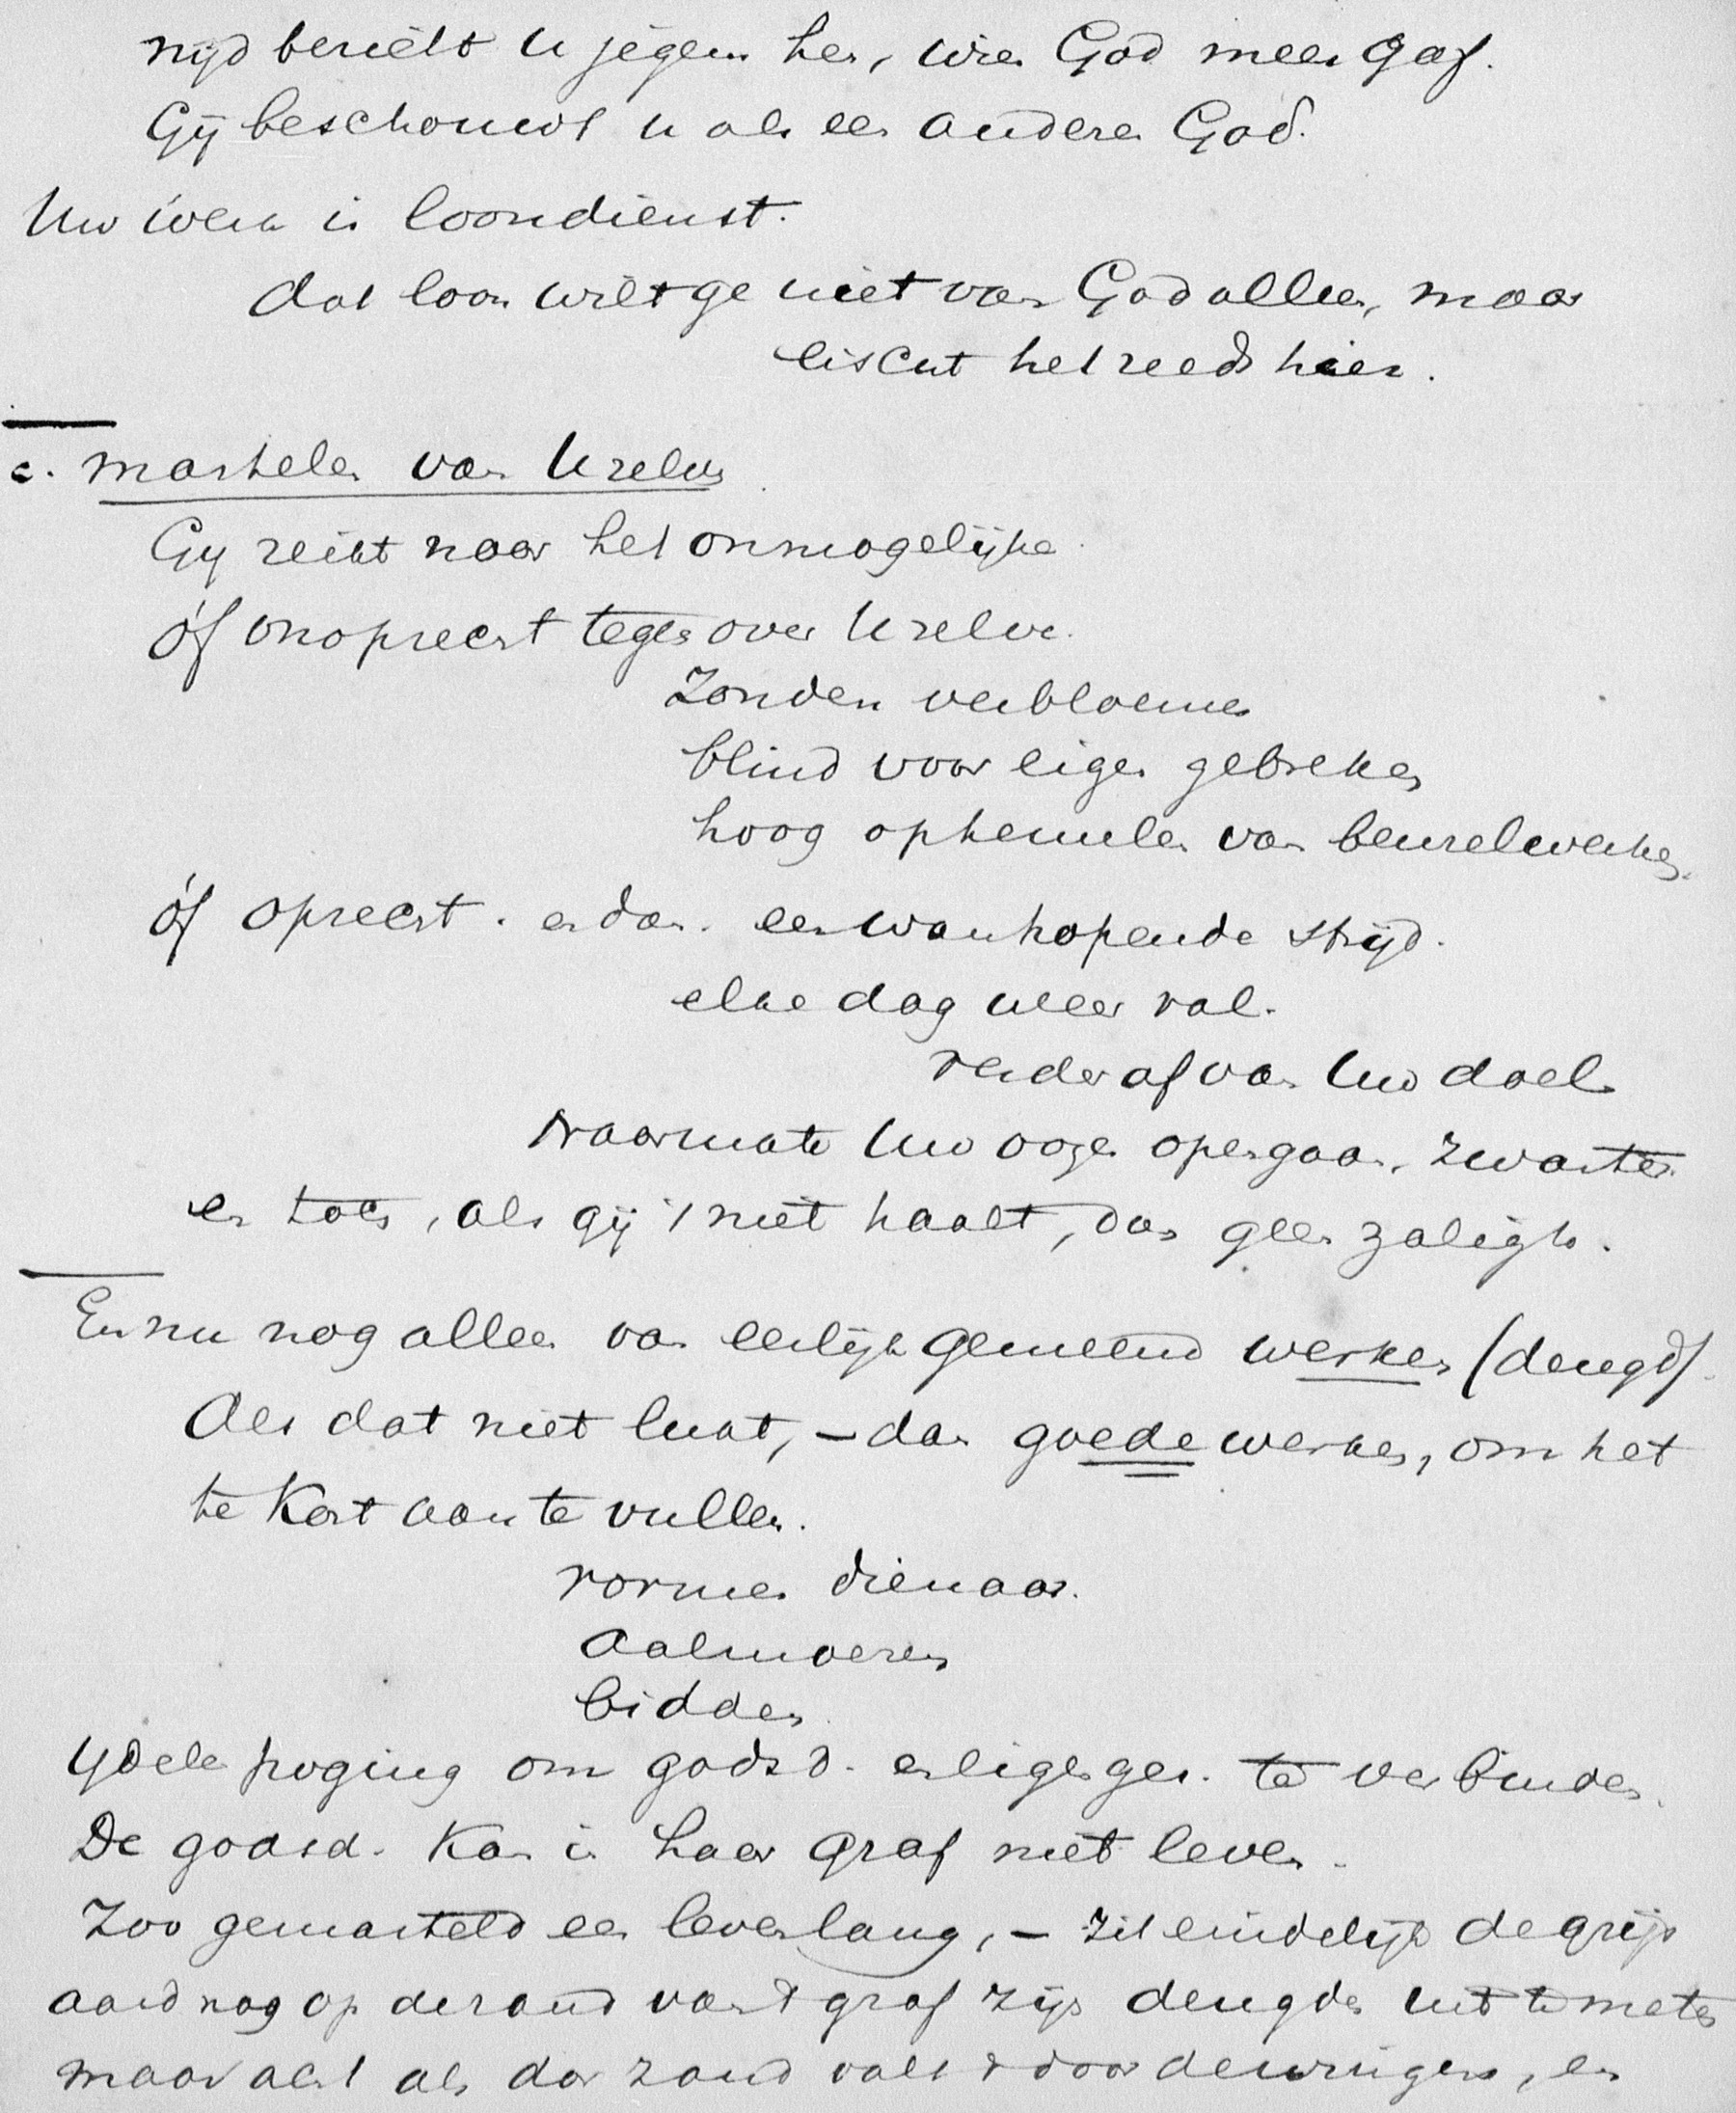 nijd bezielt U jegens hen, wien God meer gaf.
Gij beschouwt u als een anderen God.
Uw werk is loondienst.
dat loon wilt ge niet van God alleen, maar
eischt het reeds hier.
c. martelen van Uzelven
Gij reikt naar het onmogelijke.
óf onoprecht tegenover Uzelve.
Zonden verbloemen
blind voor eigen gebreken
hoog ophemelen van beuzelwerken.
óf oprecht. en dan. een wanhopende strijd.
elke dag weer val.
verder af van Uw doel
Naarmate Uw oogen opengaan, zwarter.
en toch, als gij 't niet haalt, dan geen zaligh.
En nu nog alleen van eerlijk gemeend werken (deugd).
Als dat niet lukt, – dan goede werken, om het
te Kort aan te vullen.
vormen dienaar.
aalmoezen
bidden
Ydele poging om godsd. en eigenger. te verbinden.
De godsd. Kan in haar graf niet leven.
Zoo gemarteld een leven lang, – zit eindelijk de grijs
aard nog op den rand van 't graf zijn deugden uit te meten
maar ach! als dor zand valt 't door de vingers, en